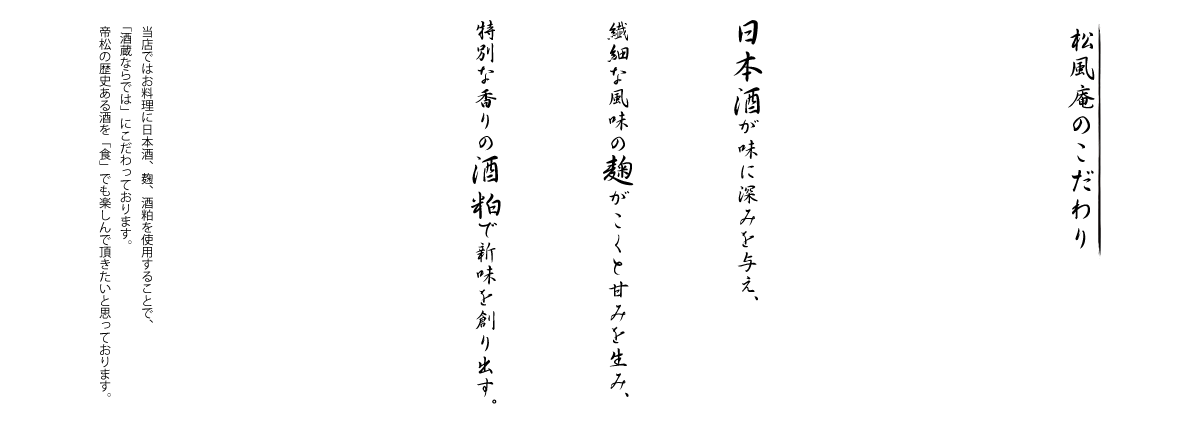 松風庵のこだわり
日本酒が味に深みを与え、
繊細な風味の麹がこくと甘みを生み、
特別な香りの酒粕で新味を創り出す。
当店ではお料理に日本酒、麹、酒粕を使用することで、
「酒蔵ならでは」にこだわっております。
帝松の歴史ある酒を「食」でも楽しんで頂きたいと思っております。